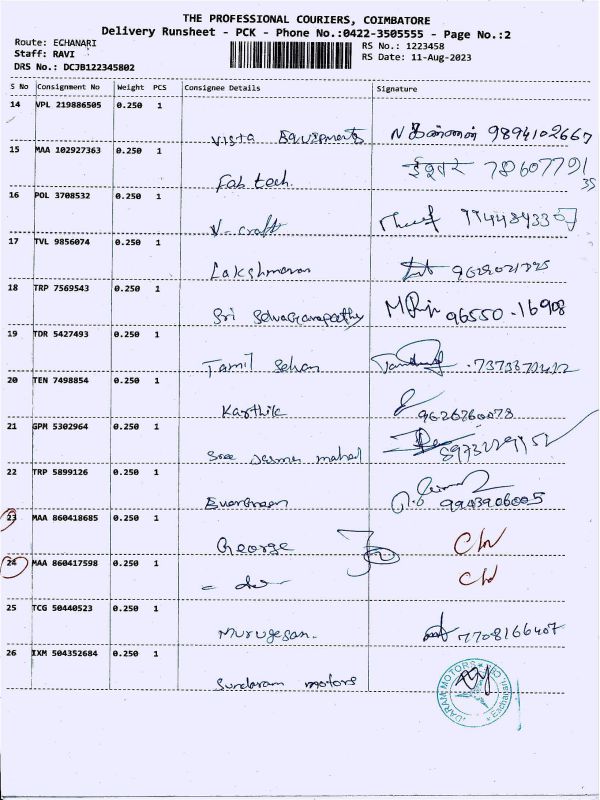 THE PROFESSIONAL COURIERS, COIMBATORE
Delivery Runsheet - PCK - Phone No.:0422-3505555 - Page No.:2
Route: ECHANARI RS No.: 1223458
Staff: RAVI RS Date: 11-Aug-2023
DRS No.: DCJB122345802
S No Consignment No Weight PCS Consignee Details Signature
14 VPL 219886505 0.250 1
Vista Equipments 9894102667
15 MAA 102927363 0.250 1
Fab tech. ईश्वर 7860779135
16 POL 3708532 0.250 1
V-craft
17 TVL 9856074 0.250 1
Lakshmanan
18 TRP 7569543 0.250 1
Sri Selvaganapathy 96550-16908
19 TDR 5427493 0.250 1
Tamil Selvan
20 TEN 7498854 0.250 1
Karthik 9626260078
21 GPM 5302964 0.250 1
Sree mahal
22 TRP 5899126 0.250 1
Evergreen 9943906005
23 MAA 860418685 0.250 1
George
24 MAA 860417598 0.250 1
- do -
25 TCG 50440523 0.250 1
Murugesan. 7708166407
26 IXM 504352684 0.250 1
Sundaram motors
DARAM MOTORS